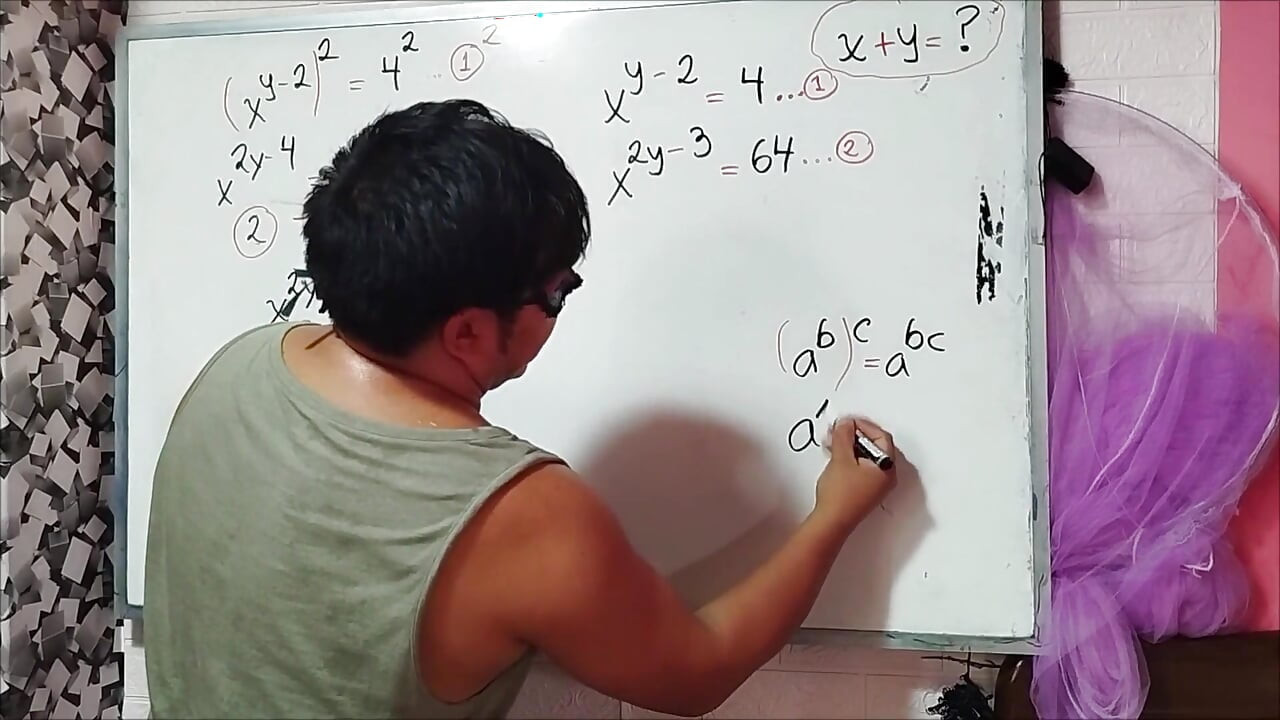 x + y = ?
(x^{y-2})^2 = 4^2 ... ①^2
x^{2y-4}
②
x^{2y
x^{y-2} = 4 ... ①
x^{2y-3} = 64 ... ②
(a^b)^c = a^{bc}
a